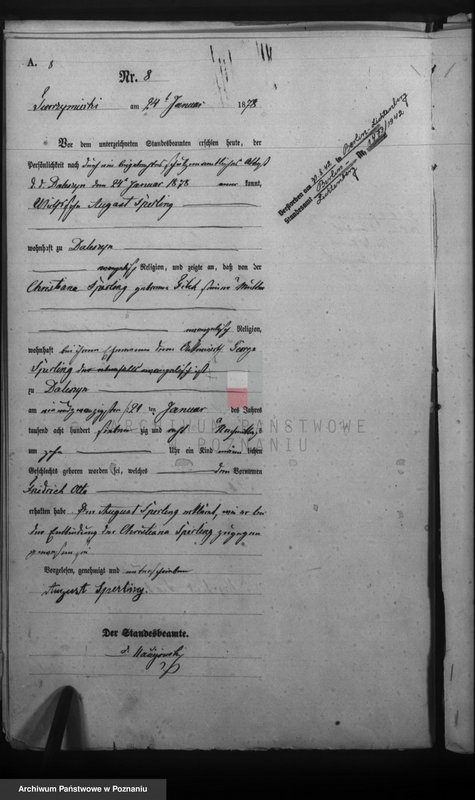 A. 8
Nr. 8
am 24 t Januar 1878
Vor dem unterzeichneten Standesbeamten erschien heute, der
Persönlichkeit nach durch ein
Daleszyn den 24 t Januar 1878 kannt,
August Sperling
wohnhaft zu Daleszyn
evangelisch Religion, und zeigte an, daß von der
Christiana Sperling geborene seiner Mutter
evangelisch Religion,
wohnhaft bei ihrem Ehemanne dem George
Sperling der ebenfalls evangelisch ist
zu Daleszyn
am ein und zwanzigsten ten Januar des Jahres
tausend acht hundert siebenzig und acht Nachmittags
um zehn Uhr ein Kind männlichen
Geschlechts geboren worden sei, welches den Vornamen
Friedrich Otto
erhalten habe. Der August Sperling erklärt, daß er bei
der Entbindung der Christiana Sperling zugegen
gewesen sei
Vorgelesen, genehmigt und unterschrieben
August Sperling.
Der Standesbeamte.
Verstorben am in Berlin-Lichtenberg
Standesamt Berlin-Lichtenberg Nr. /1942
ARCHIWUM PAŃSTWOWE
W POZNANIU
Archiwum Państwowe w Poznaniu